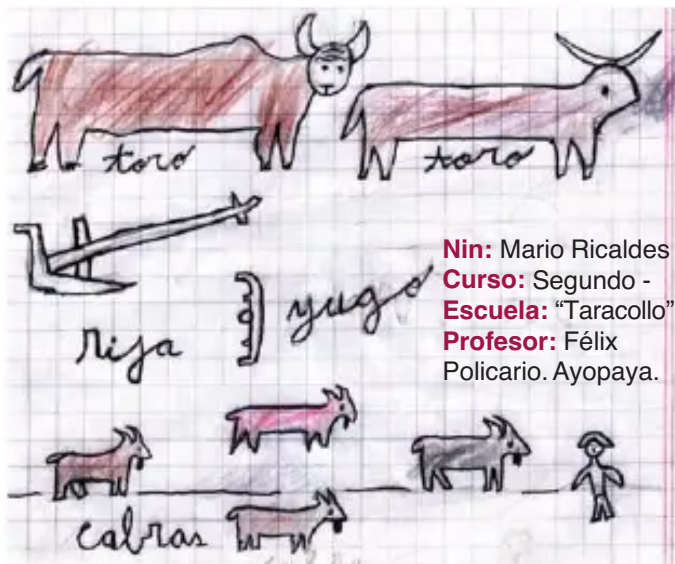 toro toro
Nin: Mario Ricaldes
Curso: Segundo -
Escuela: “Taracollo”
Profesor: Félix
Policario. Ayopaya.
yugo
rija
cabras